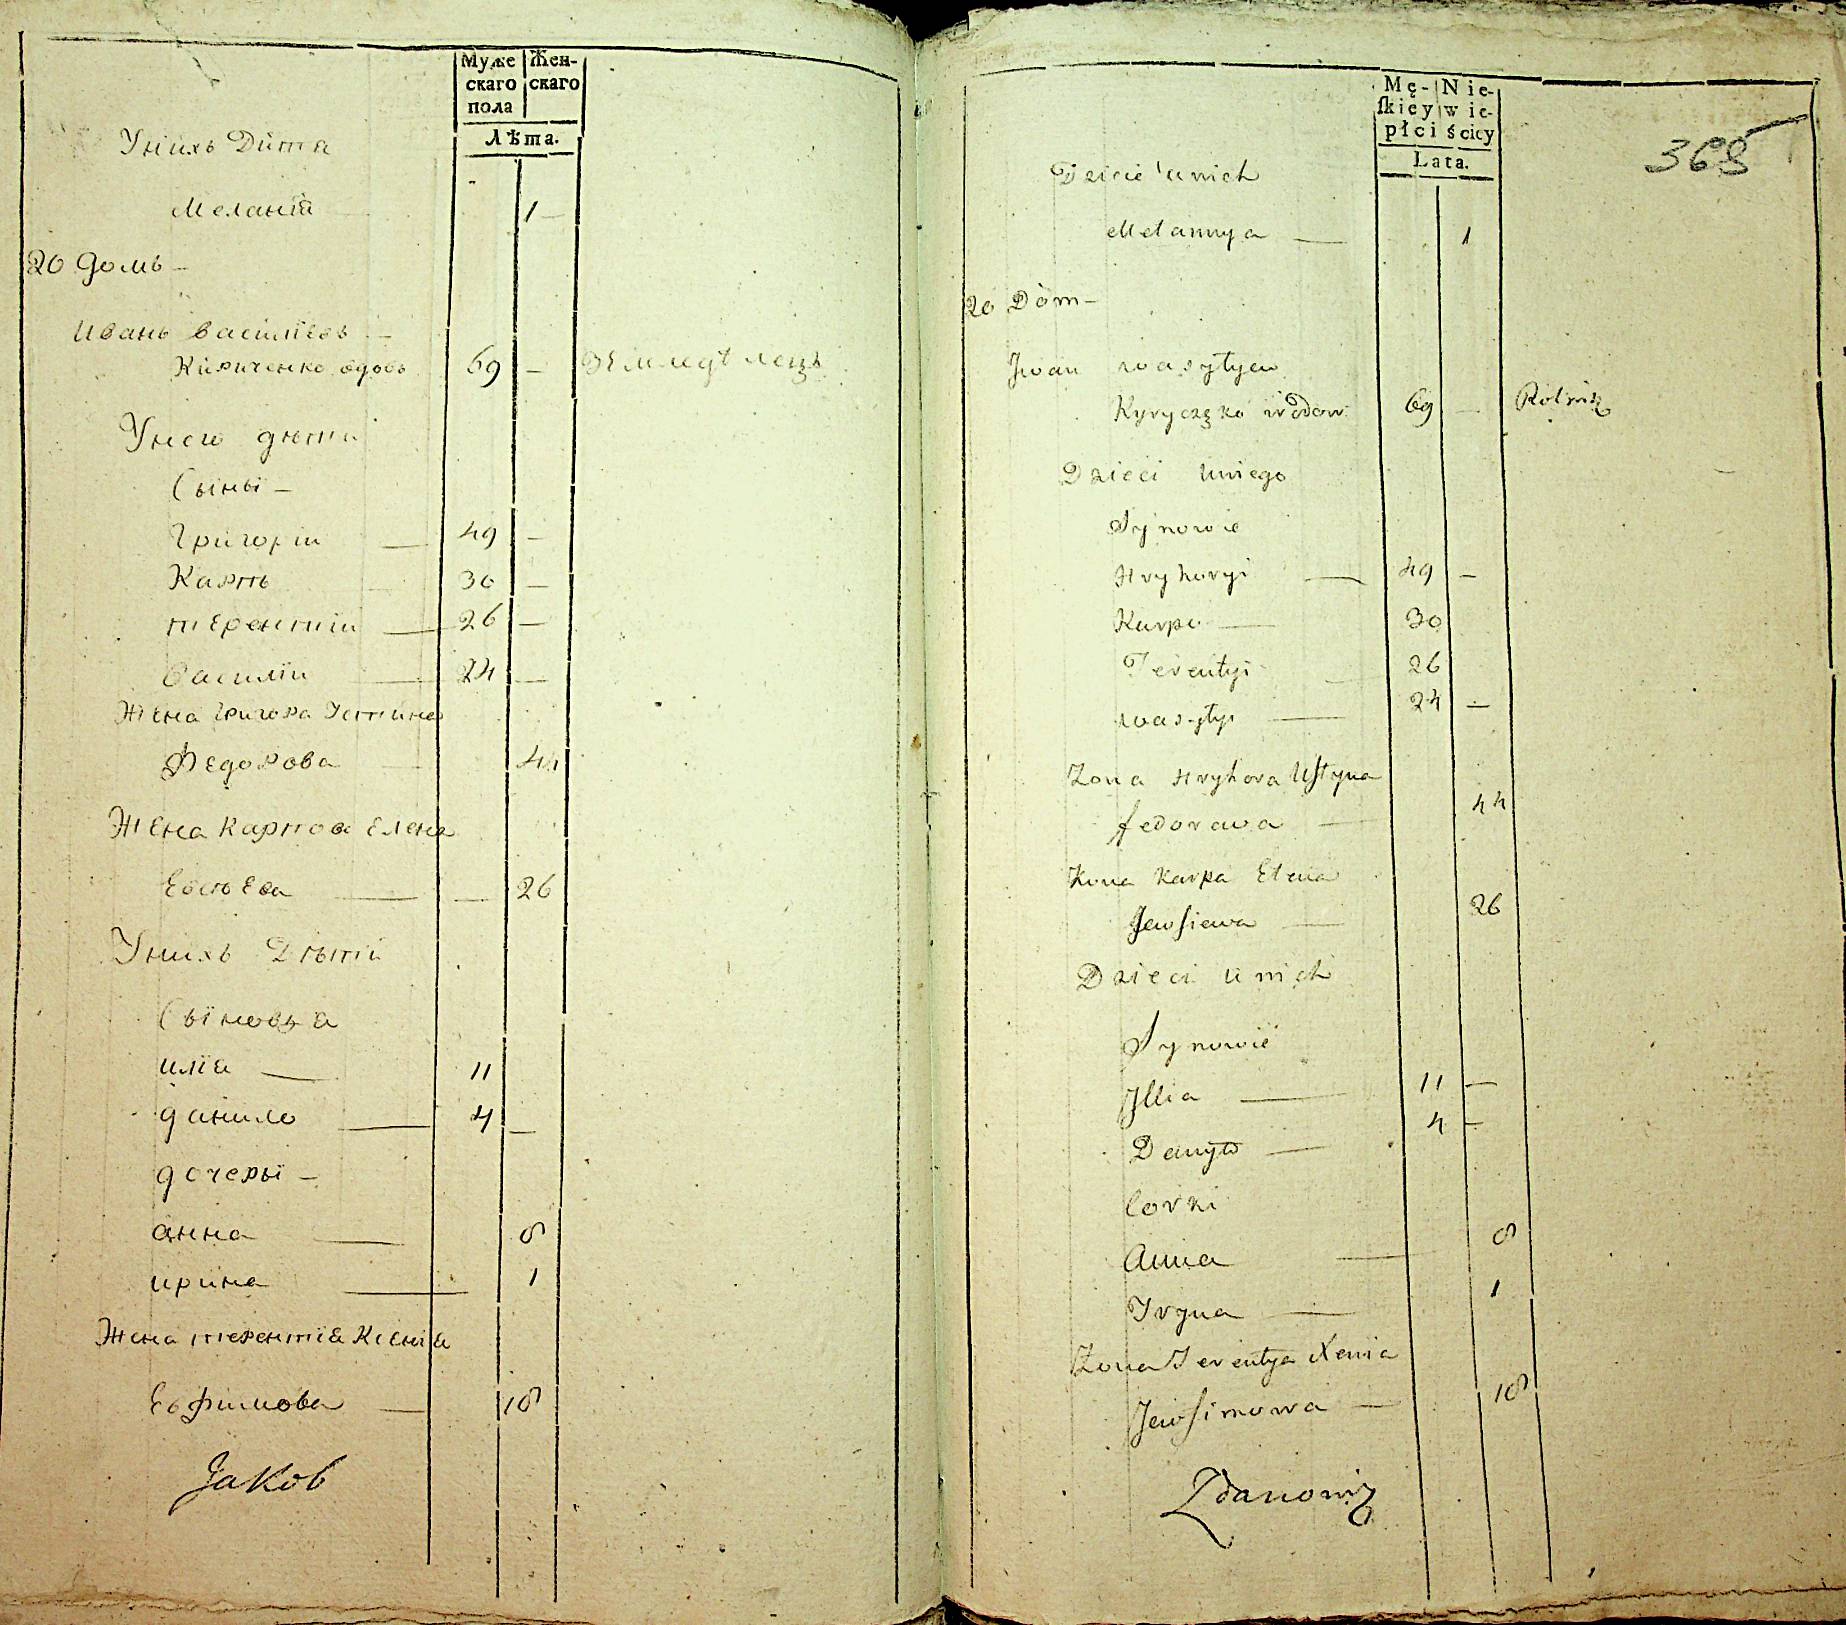 Муже
скаго
пола
Жен-
скаго
Лѣта.
Унихъ Дитя
Меланія 1
20 домъ
Иванъ василіевъ
Кириченко вдовъ 69 — Земледѣлецъ
Унего дѣти
Сыны —
Григорій — 49 —
Карпъ 30 —
терентій — 26 —
василій — 24 —
Жена григора Устина
Федорова 44
Жена карпова Елена
Евсѣева — — 26
Унихъ Дѣти
Сыновья
илія — 11
данило — 4 —
дочеры —
анна — 8
ирина — 1
Жена терентія Ксенія
Евфимова — 18
Jakob
Mę-
skiey
płci
Nie-
wie-
ściey
Lata.
368
Dzicie unich
Melannya — 1
20 Dom —
Jwan wasylyew
Kyryczęko wdow 69 — Rolnik
Dzieci uniego
Synowie
Hryhoryi — 49 —
Karpo — 30
Terentyi — 26
wasylyi — 24 —
Zona Hryhora Ustyna
fedorowa — 44
Zona Karpa Elena
Jewsiewa — 26
Dzieci unich
Synowie
Jllia — 11 —
Danyło — 4 —
Corki
Anna — 8
Iryna — 1
Zona Terentya Xenia
Jewfimowa — 18
Zdanowicz